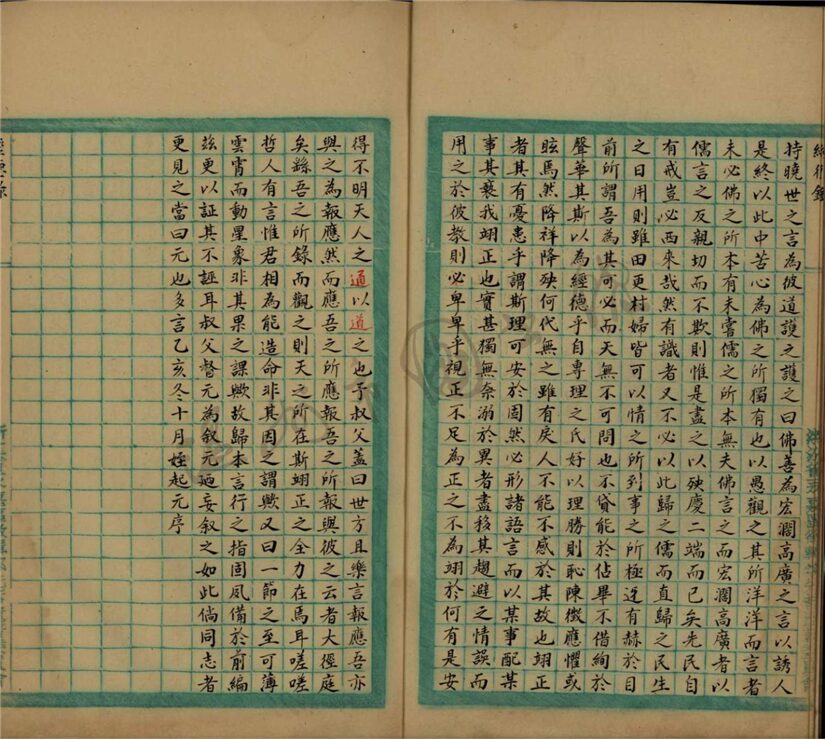 持曉世之言為彼道護之護之曰佛善為宏濶高廣之言以誘人
是終以此中苦心為佛之所獨有也以愚觀之其所洋洋而言者
未必佛之所本有未嘗儒之所本無夫佛言之而宏濶高廣者以
儒言之反親切而不欺則惟是盡之以殃慶二端而已矣先民自
有戒豈必西來哉然有識者又不必以此歸之儒而直歸之民生
之日用則雖田更村婦皆可以情之所到事之所極逆有赫於目
前所謂吾為其可必而天無不可問也不貸能於佔畢不借絢於
聲華其斯以為經德乎自專理之氏好以理勝則恥陳徵應懼或
眩焉然降祥降殃何代無之雖有戾人不能不感於其故也翊正
者其有憂患乎謂斯理可安於固然必形諸語言而以某事配某
事其褻我翊正也實甚獨無奈溺於異者盡移其趨避之情誤而
用之於彼教則必卑卑乎視正不足為正之不為翊於何有是安
得不明天人之道以道之也予叔父蓋曰世方且樂言報應吾亦
與之為報應然而應吾之所應報吾之所報與彼之云者大徑庭
矣繇吾之所錄而觀之則天之所在斯翊正之全力在焉耳嗟嗟
哲人有言惟君相為能造命非其因之謂歟又曰一節之至可薄
雲霄而動星象非其果之課歟故歸本言行之指固夙備於前編
玆更以証其不誣耳叔父督元為叙元廼妄叙之如此倘同志者
更見之當曰元也多言乙亥冬十月姪起元序